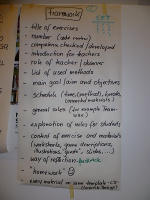 framework
- title of exercises
- number (code
- competence checked / developed
- introduction for teachers
- role of teacher / observer
- list of used methods
- main goal / aim and objectives
- schedule (time, methods, breaks,
needed materials)
- general rules (for example Team-
work)
- explanation of rules for students
- content of exercise and materials
(worksheets, game descriptions,
illustrations, guide, slides ...)
- way of reflection - feedback
- "homework"
- every material on same template - CD